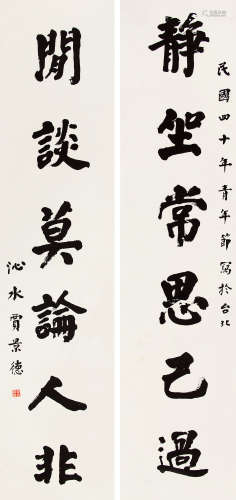 靜坐常思己過
民國四十年青年節寫於台北
閒談莫論人非
沁水賈景德